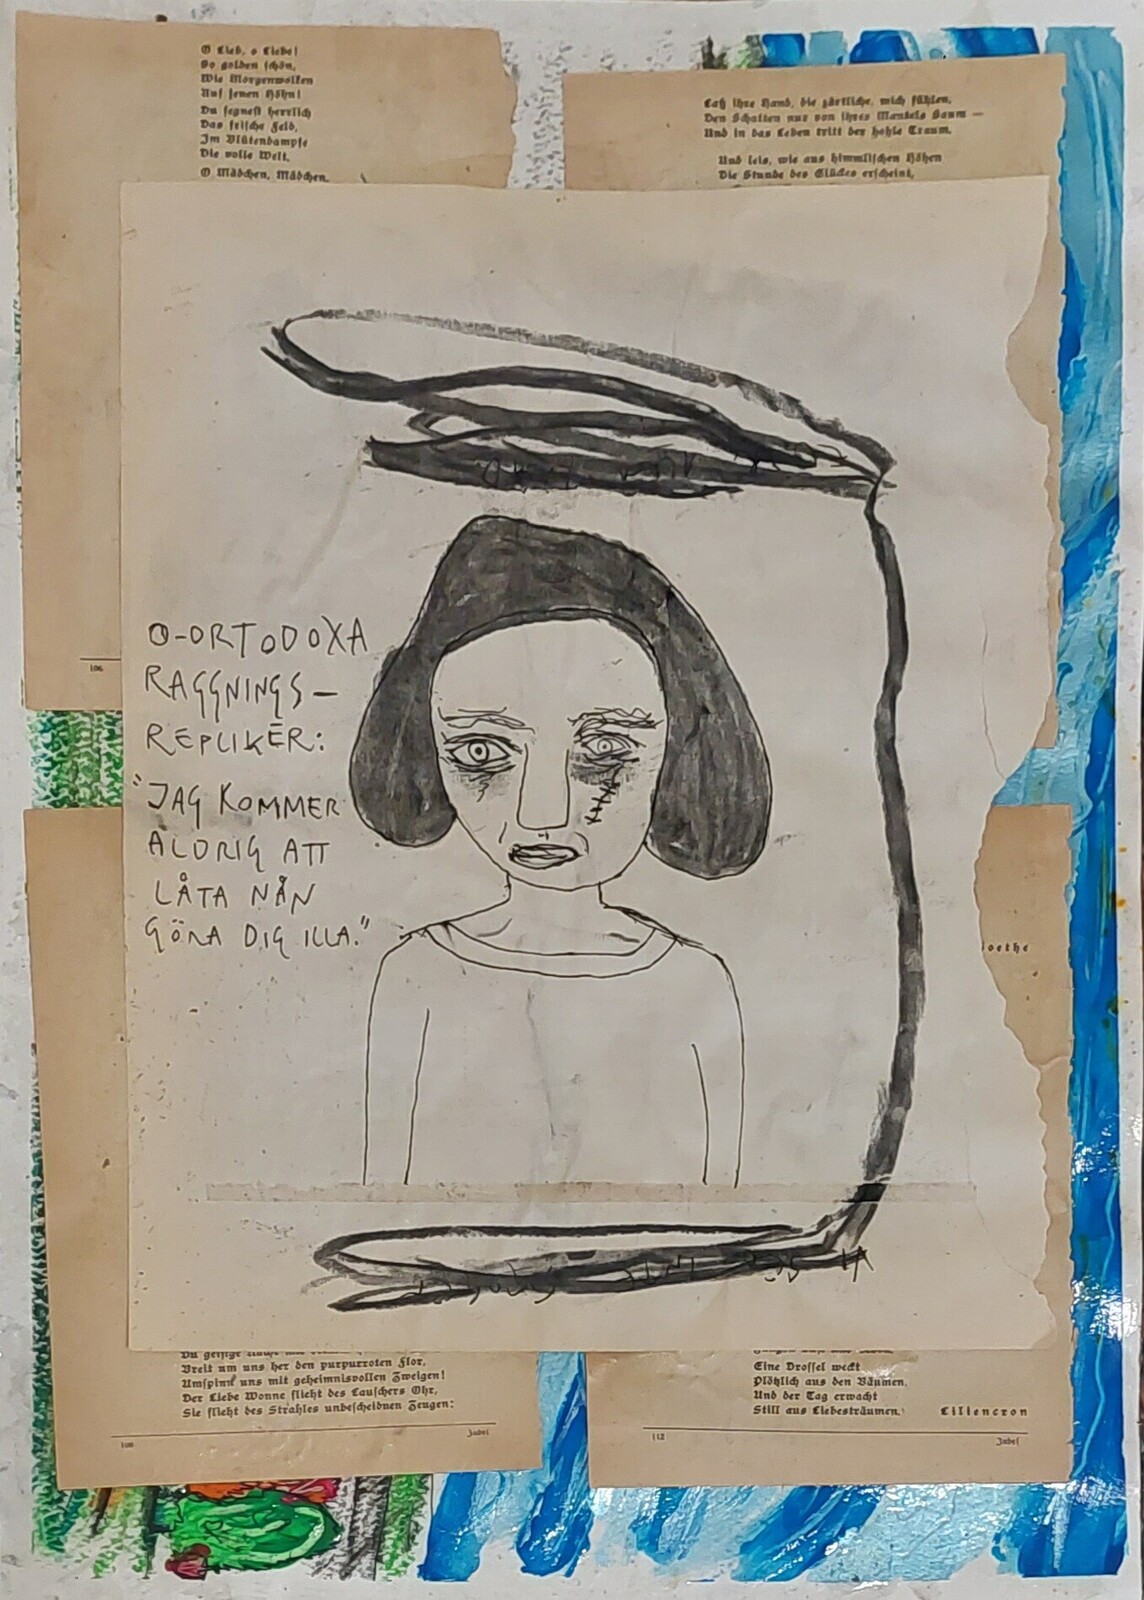 O Lieb, o Liebe!
So golden schön,
Wie Morgenwolken
Auf jenen Höhn!
Du segnest herrlich
Das frische Feld,
Im Blütendampfe
Die volle Welt.
O Mädchen, Mädchen,
Laß ihre Hand, die zärtliche, mich fühlen,
Den Schatten nur von ihres Mantels Saum —
Und in das Leben tritt der hohle Traum.
Und leis, wie aus himmlischen Höhen
Die Stunde des Glückes erscheint,
O-ORTODOXA
RAGGNINGS-
REPLIKER:
"JAG KOMMER
ALDRIG ATT
LÅTA NÅN
GÖRA DIG ILLA."
106
oethe
Breit um uns her den purpurroten Flor,
Umspinn uns mit geheimnisvollen Zweigen!
Der Liebe Wonne flieht des Lauschers Ohr,
Sie flieht des Strahles unbescheidnen Zeugen:
Jubel
Eine Drossel weckt
Plötzlich aus den Bäumen,
Und der Tag erwacht
Still aus Liebesträumen.
Liliencron
112
Jubel